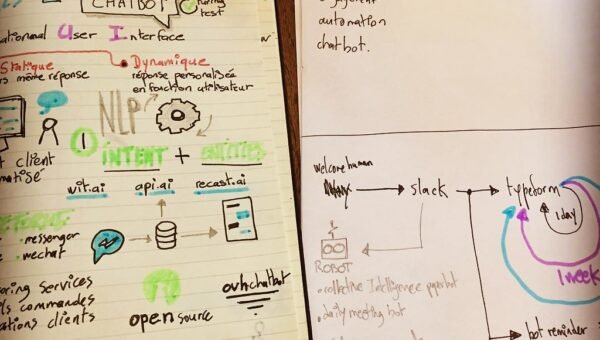 CHATBOT
turing
test
User Interface
Statique
même réponse
Dynamique
réponse personalisée
en fonction utilisateur
NLP
client
1
INTENT + ENTITIES
wit.ai api.ai recast.ai
. messenger
. wechat
services
commandes
clients
open source
ovhchatbot
automation
chatbot.
welcome human
slack
typeform
1 day
1 week
ROBOT
. collective Intelligence
. daily meeting bot
bot reminder